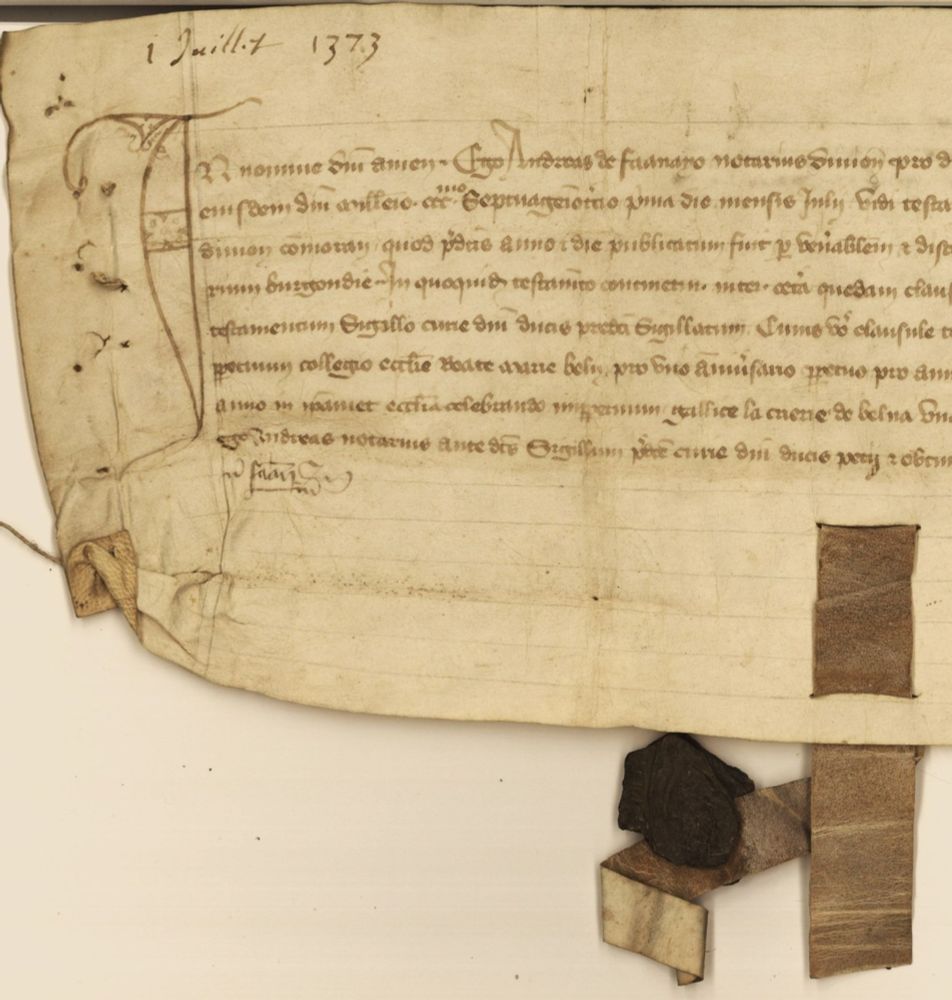 1 Juillet 1373
IN nomine dni amen. Ego Andreas de faanayo notarius diuion pro d
eiusdem dni millesio. ccc.mo Septuagesiotcio pma die mensis Iulij Vidi testa
diuion comoran quod pdcis anno et die publicatum fuit p venablem et disc
rium burgondie. In quoquid testamto continetur inter cetera quedam claus
testamentum Sigillo curie dni ducis predci Sigillatum. Cuius vo clausule t
ppetuum collegio ecclie Beate marie beln. pro vno anniusario ppetuo pro ani
anno in ipamet ecclia celebrando imppetuum gallice la cuerie de belna Vn
ego Andreas notarius ante dcs Sigillum pdce curie dni ducis petij et obtin